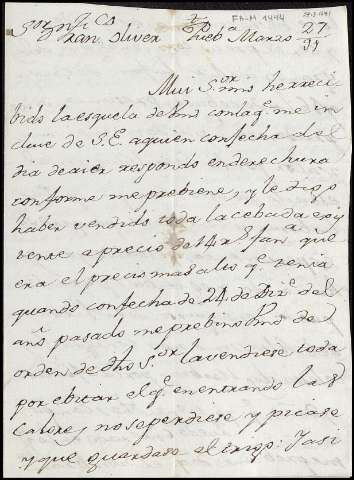 FA-M 1494
Sor Dn Fco
Fran. Oliver Pueba Marzo 27
Mui Sor mio he reci
bido la esquela de Vmd con la q.e me in
cluie de S.E. a quien con fecha del
dia de aier respondo en derechura
conforme me prebiene, y le digo
haber vendido toda la cebada
a precio de 14 rs fana que
era el precio mas alto q.e tenia
quando con fecha de 24 de Dize del
año pasado me prebino Vmd de
orden de dho Sor la vendiese toda
por ebitar el q.e en entrando la
calore, no se perdiese y picase
y que guardase el trigo: Y asi